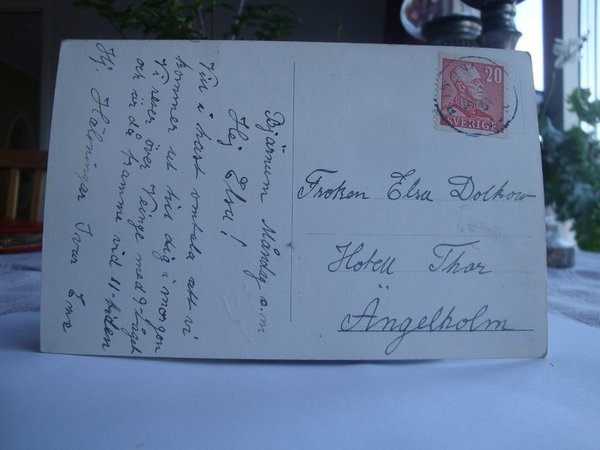 Bjärnum Måndag e.m
Hej Elsa!
Vill i hast omtala att vi
kommer ut till dig i morgon
Vi reser över Tyringe med 9-tåget
och är då framme vid 11-tiden
Hj. Hälsningar Ivar Erna
20
SVERIGE
Fröken Elsa Dolkow
Hotell Thor
Ängelholm